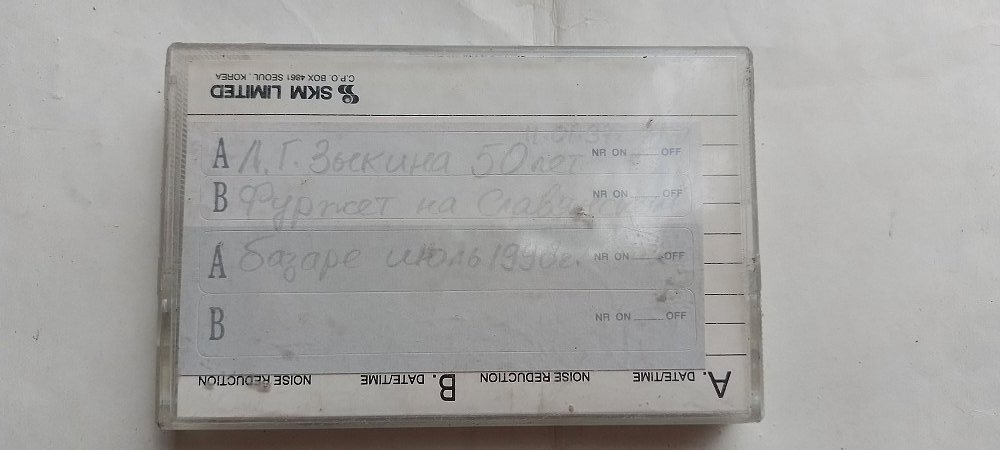 SKM LIMITED
C.P.O. BOX 4861 SEOUL, KOREA
A Л.Г. Зыкина 50 лет NR ON OFF
B Фуржет на Славянском NR ON OFF
A базаре июль 1998г. NR ON OFF
B NR ON OFF
A. DATE/TIME NOISE REDUCTION B. DATE/TIME NOISE REDUCTION